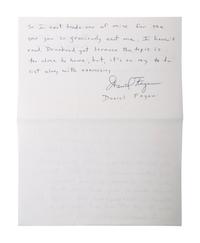 So I cant trade one of mine for the
one you so graciously sent me. I haven't
read Drunkard yet because the topic is
too close to home, but, it's on my to do
list along with exercising.
Daniel Fagan
Daniel Fagan